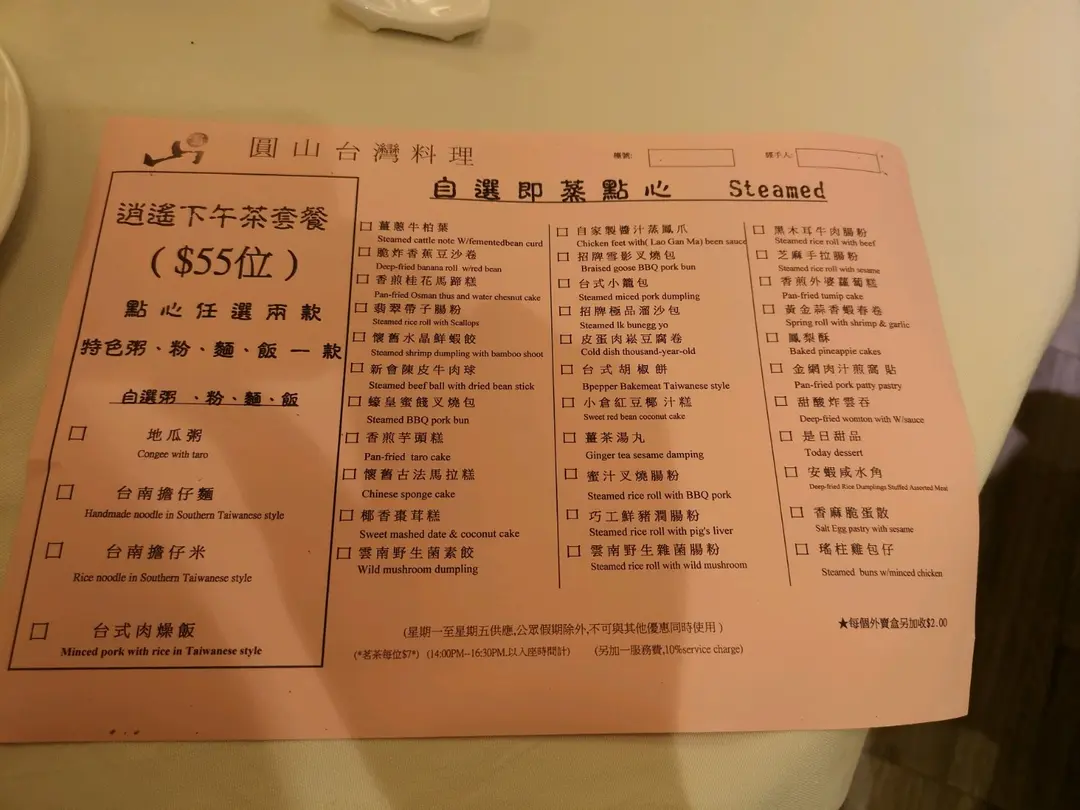 圓山台灣料理
檯號:
經手人:
逍遙下午茶套餐
( $55位 )
點心任選兩款
特色粥、粉、麵、飯一款
自選粥、粉、麵、飯
地瓜粥
Congee with taro
台南擔仔麵
Handmade noodle in Southern Taiwanese style
台南擔仔米
Rice noodle in Southern Taiwanese style
台式肉燥飯
Minced pork with rice in Taiwanese style
自選即蒸點心 Steamed
薑蔥牛柏葉
Steamed cattle note W/fementedbean curd
脆炸香蕉豆沙卷
Deep-fried banana roll w/red bean
香煎桂花馬蹄糕
Pan-fried Osman thus and water chesnut cake
翡翠帶子腸粉
Steamed rice roll with Scallops
懷舊水晶鮮蝦餃
Steamed shrimp dumpling with bamboo shoot
新會陳皮牛肉球
Steamed beef ball with dried bean stick
蠔皇蜜餞叉燒包
Steamed BBQ pork bun
香煎芋頭糕
Pan-fried taro cake
懷舊古法馬拉糕
Chinese sponge cake
椰香棗茸糕
Sweet mashed date & coconut cake
雲南野生菌素餃
Wild mushroom dumpling
自家製醬汁蒸鳳爪
Chicken feet with( Lao Gan Ma) been sauce
招牌雪影叉燒包
Braised goose BBQ pork bun
台式小籠包
Steamed miced pork dumpling
招牌極品溜沙包
Steamed lk bunegg yo
皮蛋肉崧豆腐卷
Cold dish thousand-year-old
台式胡椒餅
Bpepper Bakemeat Taiwanese style
小倉紅豆椰汁糕
Sweet red bean coconut cake
薑茶湯丸
Ginger tea sesame damping
蜜汁叉燒腸粉
Steamed rice roll with BBQ pork
巧工鮮豬潤腸粉
Steamed rice roll with pig's liver
雲南野生雜菌腸粉
Steamed rice roll with wild mushroom
黑木耳牛肉腸粉
Steamed rice roll with beef
芝麻手拉腸粉
Steamed rice roll with sesame
香煎外婆蘿蔔糕
Pan-fried tumip cake
黃金蒜香蝦春卷
Spring roll with shrimp & garlic
鳳梨酥
Baked pineappie cakes
金網肉汁煎窩貼
Pan-fried pork patty pastry
甜酸炸雲吞
Deep-fried womton with W/sauce
是日甜品
Today dessert
安蝦咸水角
Deep-fried Rice Dumplings Stuffed Assorted Meat
香麻脆蛋散
Salt Egg pastry with sesame
瑤柱雞包仔
Steamed buns w/minced chicken
(星期一至星期五供應,公眾假期除外,不可與其他優惠同時使用)
★每個外賣盒另加收$2.00
(*茗茶每位$7*) (14:00PM--16:30PM.以入座時間計) (另加一服務費,10%service charge)